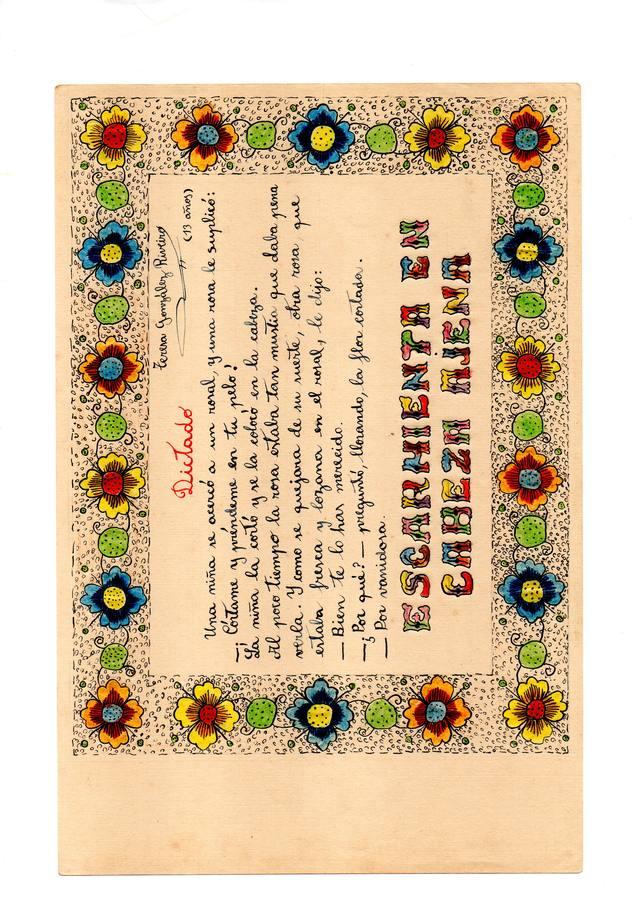 Teresa González Riveiro
(13 años)
Dictado
Una niña se acercó a un rosal, y una rosa le suplicó:
—¡Córtame y préndeme en tu pelo!
La niña la cortó y se la colocó en la cabeza.
Al poco tiempo la rosa estaba tan mustia que daba pena
verla. Y como se quejara de su suerte, otra rosa, que
estaba fresca y lozana en el rosal, le dijo:
— Bien te lo has merecido.
—¿Por qué? — preguntó, llorando, la flor cortada.
— Por vanidosa.
ESCARMIENTA EN
CABEZA AJENA